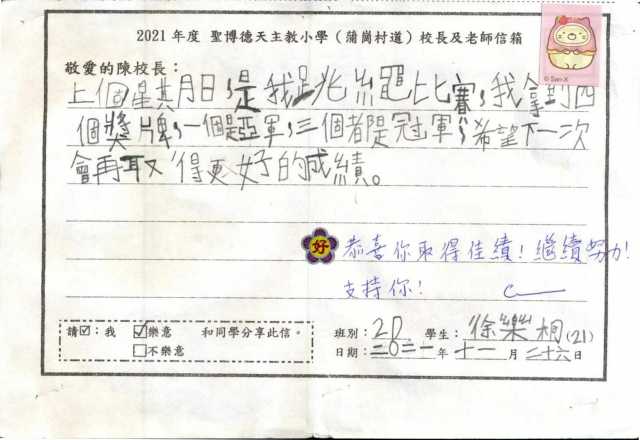 2021 年度 聖博德天主教小學（蒲崗村道）校長及老師信箱
敬愛的陳校長：
上個星其月日，是我跳繩比賽，我拿到四
個獎牌，一個是亞軍，三個都是冠軍，希望下一次
會再取得更好的成績。
好 恭喜你取得佳績！繼續努力！
支持你！
請☑：我 ☑樂意 和同學分享此信。
□不樂意
班別：2D 學生：徐樂桐(21)
日期：二〇二一年十一月二十六日
© San-X